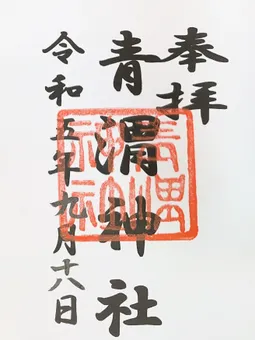 奉拝
青渭神社
令和五年九月十八日
青渭神社